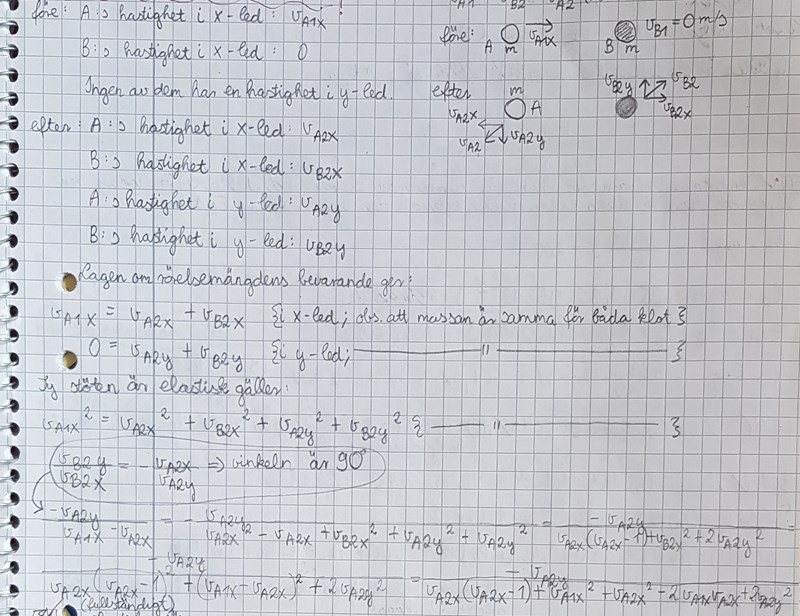 före: A:s hastighet i x-led: υA1x
B:s hastighet i x-led: 0
Ingen av dem har en hastighet i y-led.
före: A m υA1x B m υB1=0 m/s
efter m A υA2x υA2 υA2y υB2y υB2 υB2x
efter: A:s hastighet i x-led: υA2x
B:s hastighet i x-led: υB2x
A:s hastighet i y-led: υA2y
B:s hastighet i y-led: υB2y
Lagen om rörelsemängdens bevarande ger:
υA1x = υA2x + υB2x {i x-led; obs. att massan är samma för båda klot}
0 = υA2y + υB2y {i y-led; —— " ——}
Ty stöten är elastisk gäller:
υA1x² = υA2x² + υB2x² + υA2y² + υB2y² {—— " ——}
υB2y/υB2x = -υA2x/υA2y => vinkeln är 90°
-υA2y/(υA1x-υA2x) = -υA2y/(υA2x² - υA2x + υB2x² + υA2y² + υA2y²) = -υA2y/(υA2x(υA2x-1)+υB2x²+2υA2y²) =
-υA2y/(υA2x(υA2x-1)+(υA1x-υA2x)²+2υA2y²) = -υA2y/(υA2x(υA2x-1)+υA1x²+υA2x²-2υA1xυA2x+2υA2y²)
(fullständigt)